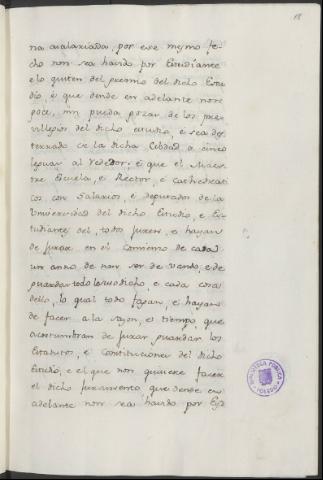 18
na asalariada, por ese mesmo fe-
cho non sea havido por Estudiante
e lo quiten del premio del dicho Estu
dio, e que dende en adelante non
goce, nin pueda gozar de los pre-
villejos del dicho estudio, e sea des
terrado de la dicha Cibdad a cinco
leguas al rededor; e que el Maes-
tre Escuela, e Rector, e Cathedrati
cos con Salarios, e deputados de la
Universidad del dicho Estudio, e Es-
tudiantes del, todos juren, e hayan
de jurar en el comienzo de cada
un anno de non ser de vando, e de
guardar todo lo suso dicho, e cada cosa
dello, lo qual todo fagan, e hayan
de facer a la sazon, e tiempo que
acostumbran de jurar guardar los
Estatutos, e Constituciones del dicho
Estudio, e el que non quisiere facer
el dicho juramento que dende en
adelante non sea havido por Es
BIBLIOTECA PUBLICA
TOLEDO